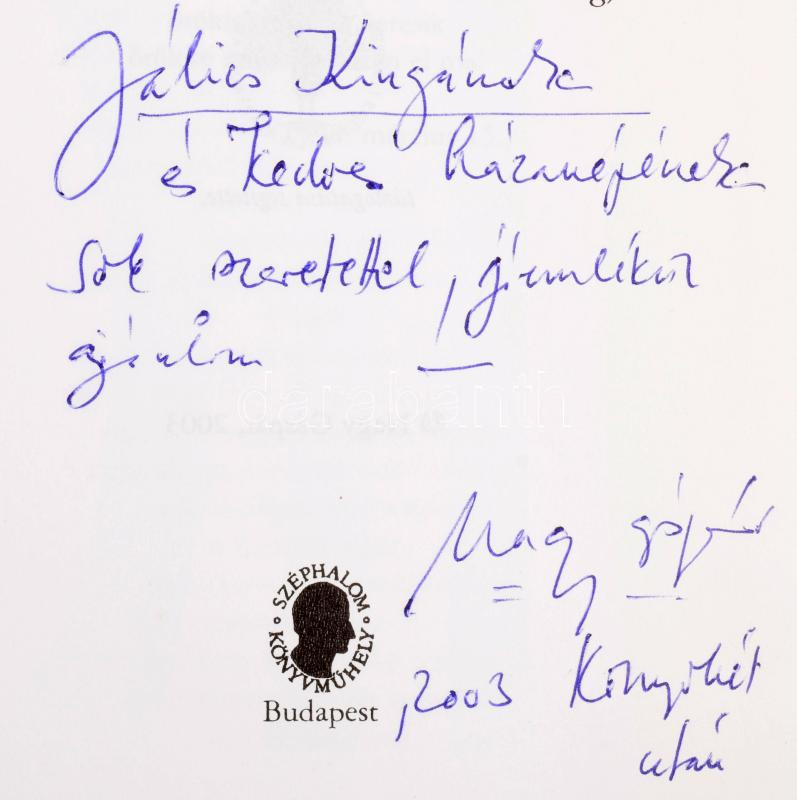 Jálics Kingának
és kedves házanépének
sok szeretettel,
ajánlom
darabanth
© Nagy Gáspár, 2003
Nagy Gáspár
SZÉPHALOM KÖNYVMŰHELY
Budapest
, 2003 Könyvhét
után